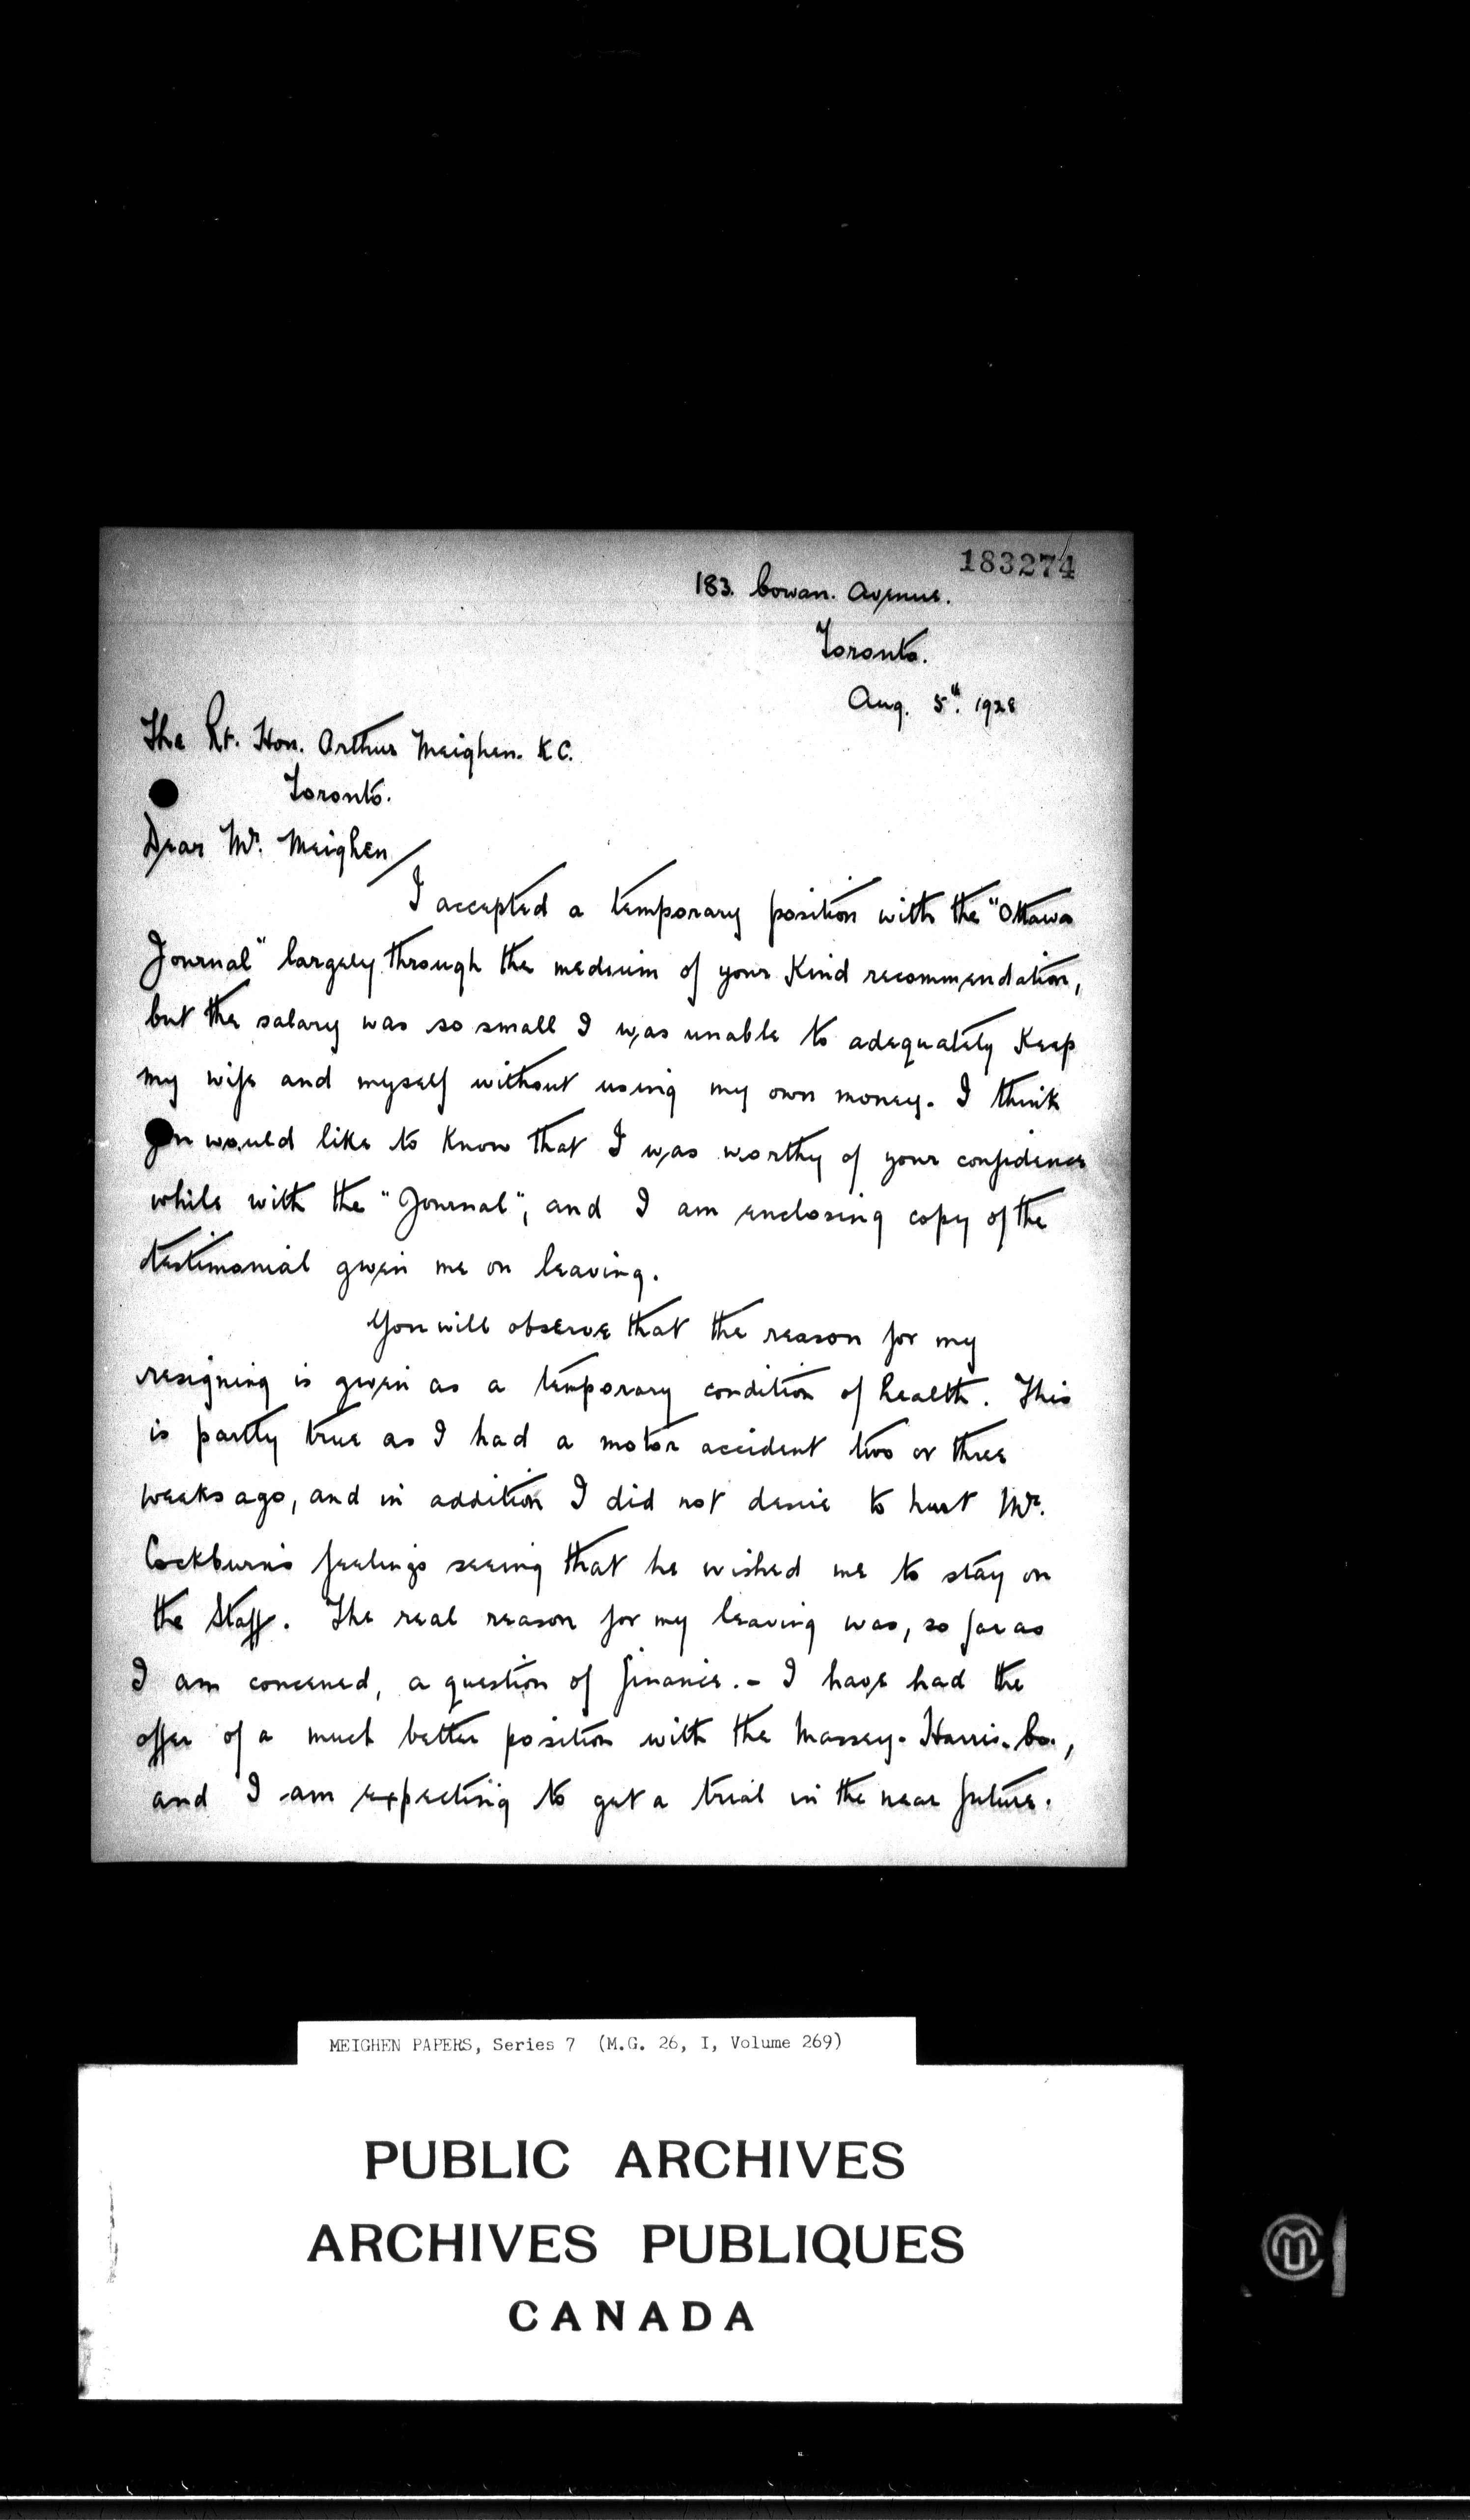 183274
183. Cowan. Avenue.
Toronto.
Aug. 5th. 1928
The Rt. Hon. Arthur Meighen. K C.
Toronto.
Dear Mr. Meighen
I accepted a temporary position with the "Ottawa
Journal" largely through the medium of your kind recommendation,
but the salary was so small I was unable to adequately keep
my wife and myself without using my own money. I think
you would like to know that I was worthy of your confidence
while with the "Journal", and I am enclosing copy of the
testimonial given me on leaving.
You will observe that the reason for my
resigning is given as a temporary condition of health. This
is partly true as I had a motor accident two or three
weeks ago, and in addition I did not desire to hurt Mr.
Cockburn's feelings seeing that he wished me to stay on
the Staff. The real reason for my leaving was, so far as
I am concerned, a question of finance. - I have had the
offer of a much better position with the Massey-Harris. Co.,
and I am expecting to get a trial in the near future.
MEIGHEN PAPERS, Series 7 (M.G. 26, I, Volume 269)
PUBLIC ARCHIVES
ARCHIVES PUBLIQUES
CANADA